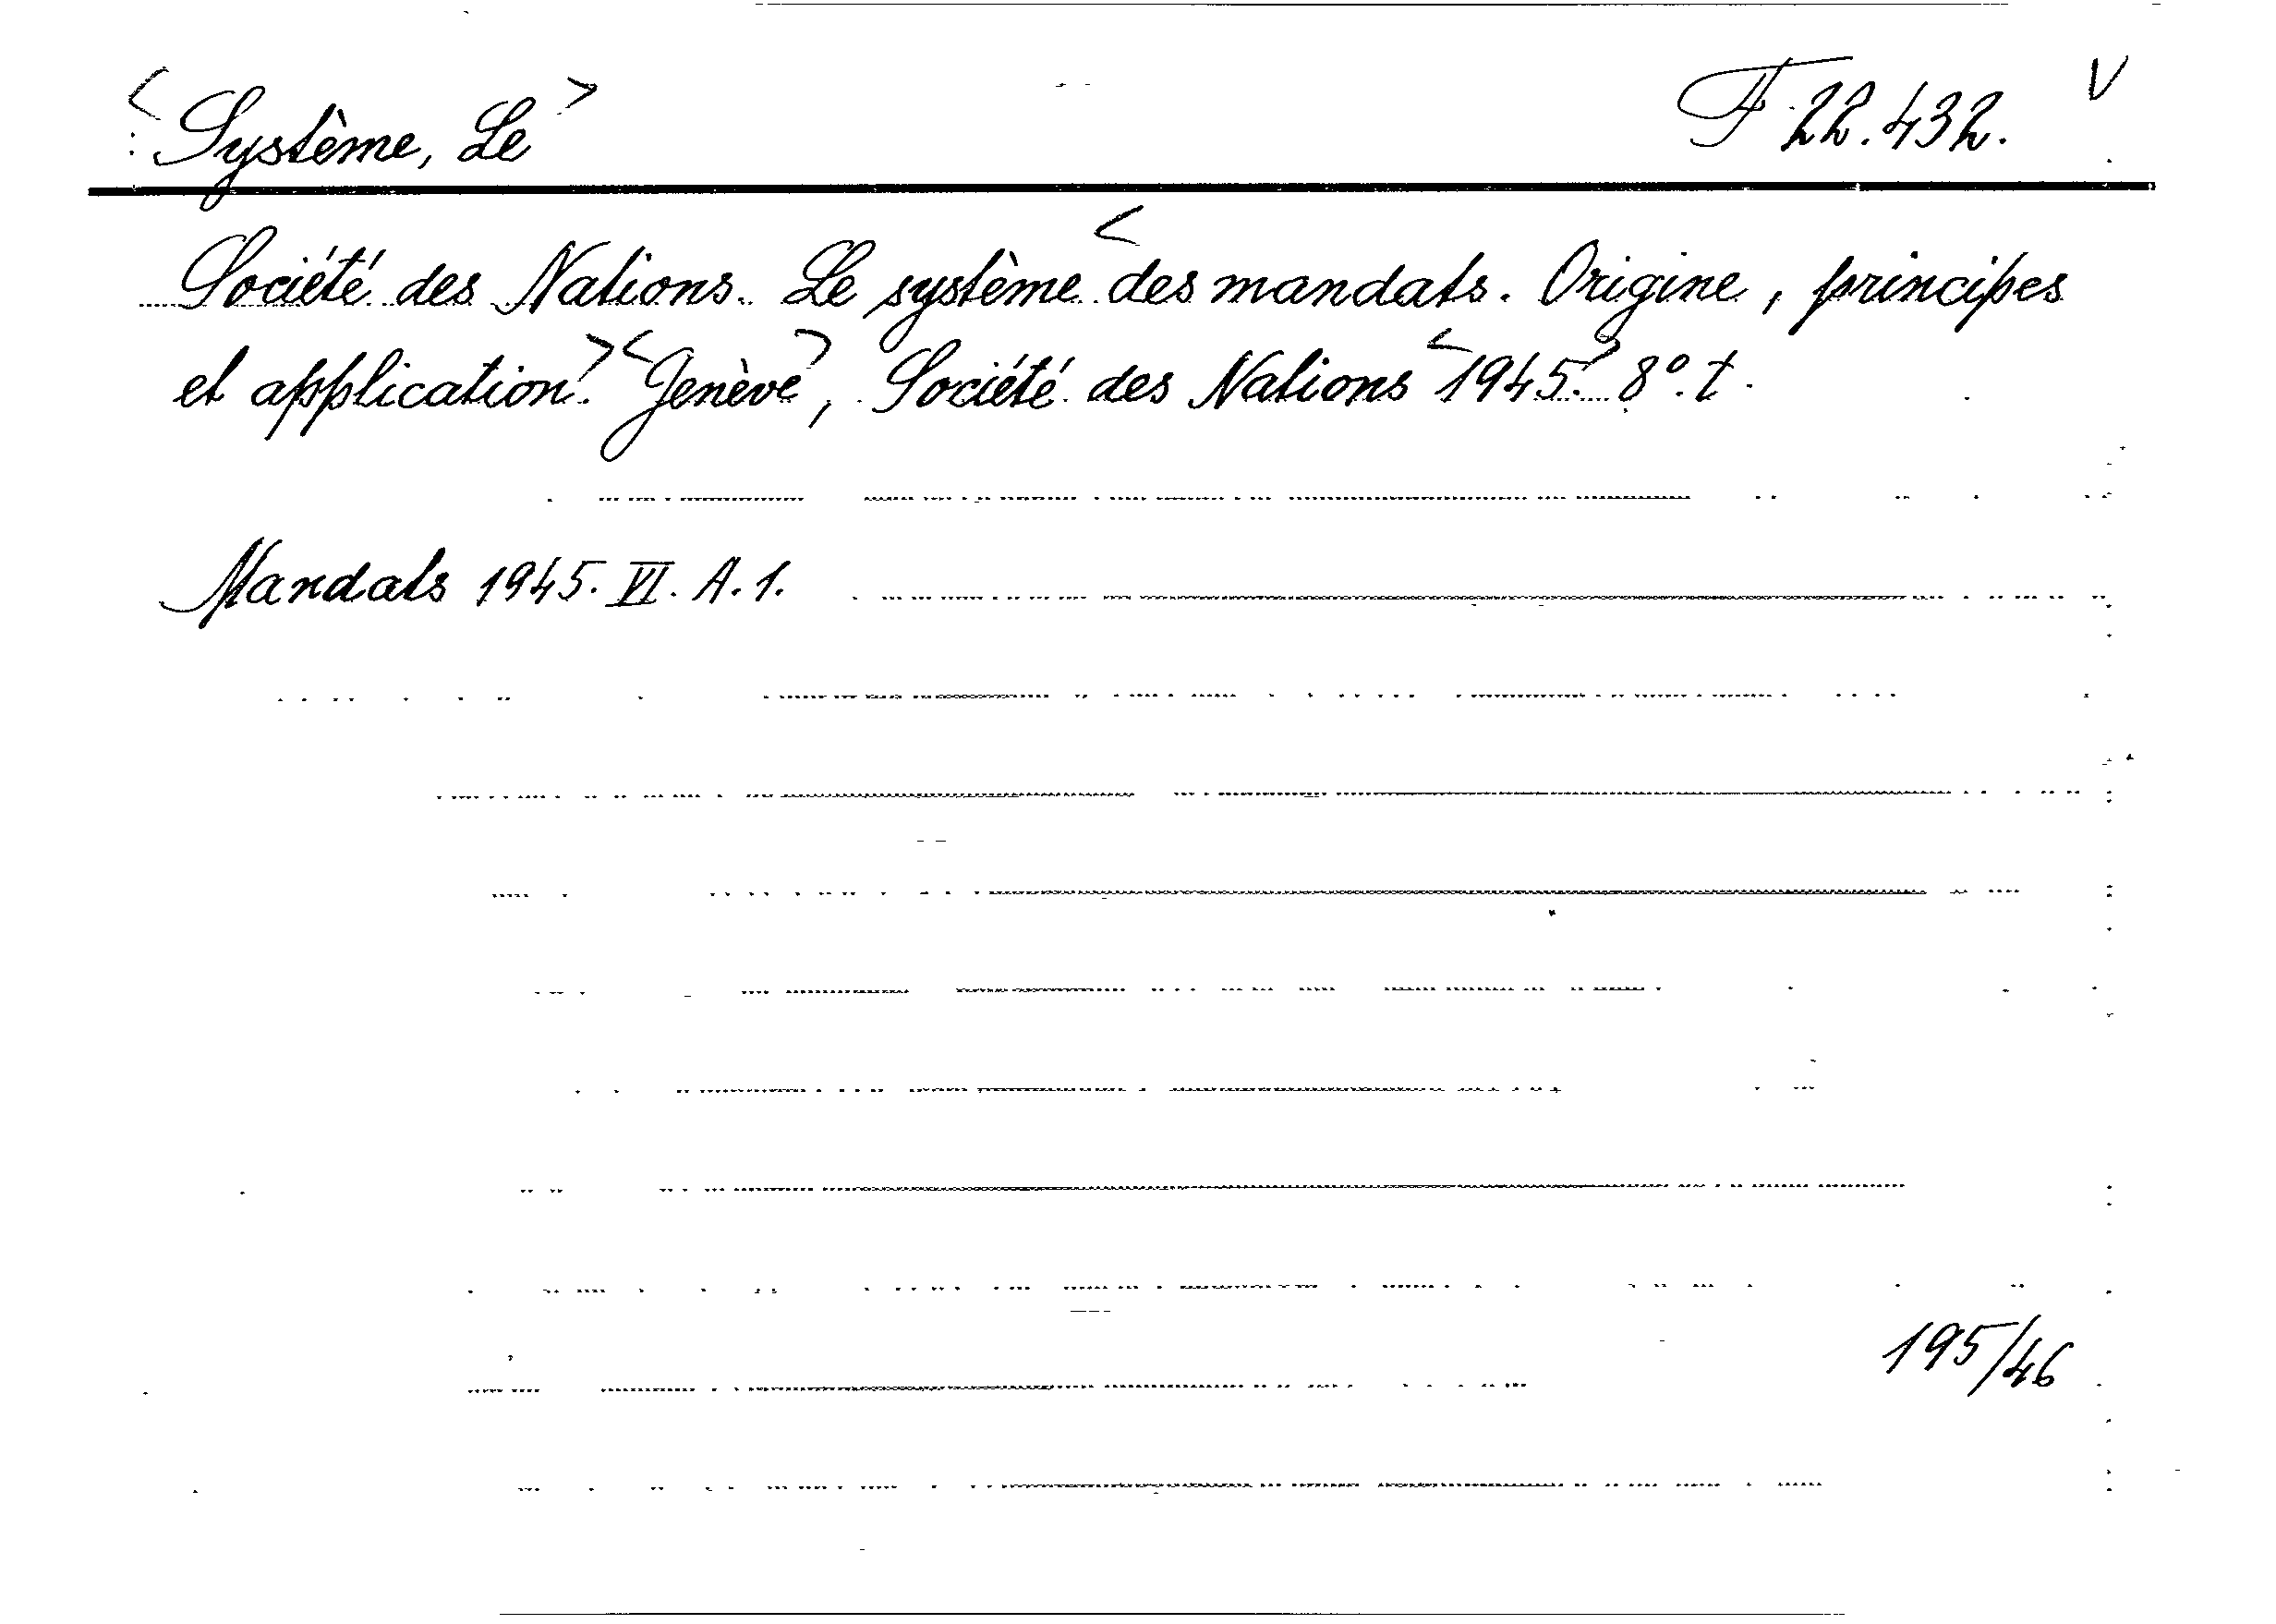 <Système, Le> F 22.432. V
Société des Nations. Le système <des mandats. Origine, principes
et application.> <Genève>, Société des Nations <1945.> 8º. t.
Mandats 1945. VI. A. 1.
195/46